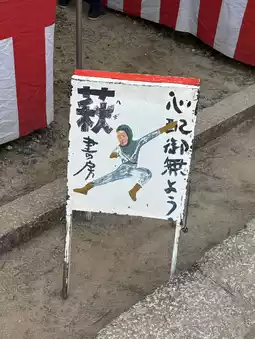 心配御無よう
萩
書の房